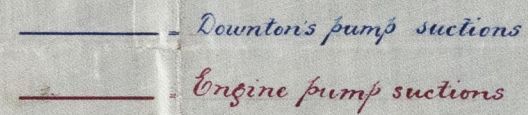 = Downton's pump suctions
= Engine pump suctions